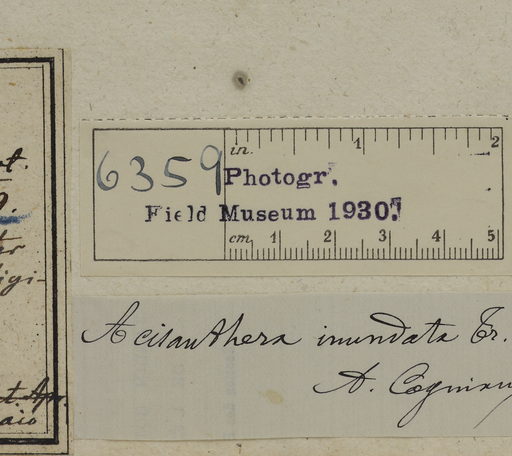 6359
in. 1 2
Photogr.
Field Museum 1930.
cm 1 2 3 4 5
Acisanthera inundata Tr.
A. Cogniaux